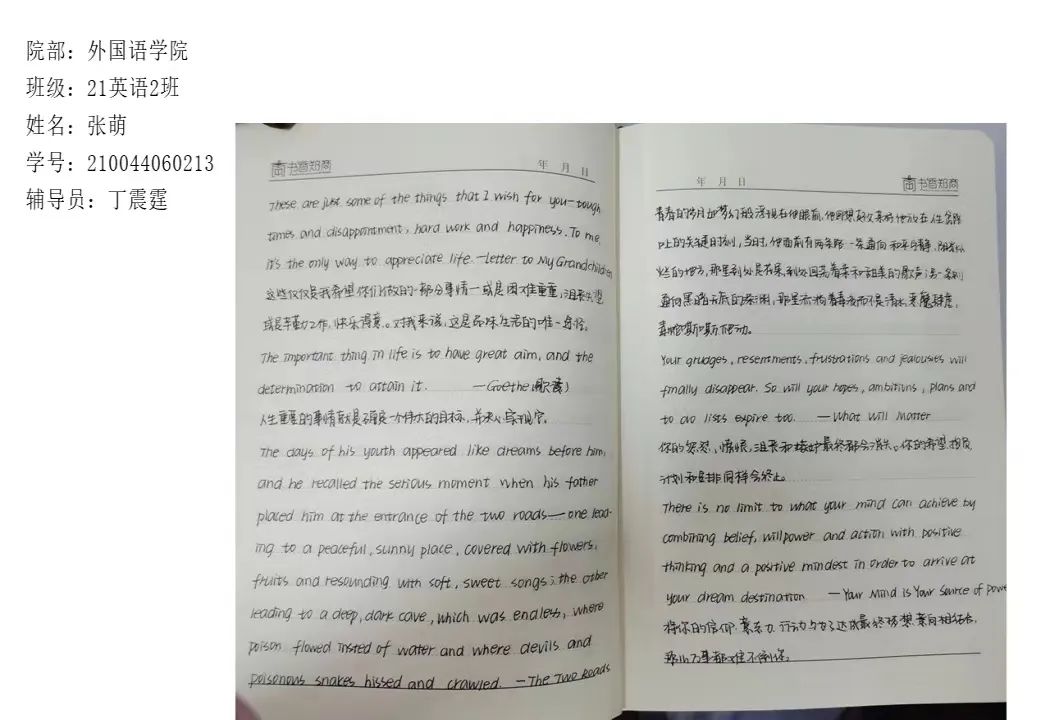 院部：外国语学院
班级：21英语2班
姓名：张萌
学号：210044060213
辅导员：丁震霆
年 月 日
These are just some of the things that I wish for you—tough
times and disappointment, hard work and happiness. To me,
it's the only way to appreciate life. —Letter to My Grandchildren
这些仅仅是我希望你们做的一部分事情—或是困难重重，沮丧失望
或是辛勤工作，快乐得意。对我来说，这是品味生活的唯一途径。
The important thing in life is to have great aim, and the
determination to attain it. —Goethe(歌德)
人生重要的事情就是确定一个伟大的目标，并决心实现它。
The days of his youth appeared like dreams before him,
and he recalled the serious moment when his father
placed him at the entrance of the two roads—one lead-
ing to a peaceful, sunny place, covered with flowers,
fruits and resounding with soft, sweet songs; the other
leading to a deep, dark cave, which was endless, where
poison flowed insted of water and where devils and
poisonous snakes hissed and crawled. —The Two Roads
年 月 日
青春的岁月如梦幻般浮现在他眼前，他回想起父亲将他放在人生岔路
口上的关键时刻，当时，他面前有两条路一条通向和平宁静，阳光灿
烂的地方，那里到处是花果，到处回荡着柔和甜美的歌声；另一条则
通向黑暗无底的深渊，那里流淌着毒液而不是清水，恶魔肆虐，
毒蛇嘶嘶爬动。
Your grudges, resentments, frustrations and jealousies will
finally disappear. So will your hopes, ambitions, plans and
to do lists expire too. —What Will Matter
你的怨怒，憎恨，沮丧和嫉妒最终都会消失。你的希望，抱负
计划和安排同样会终止。
There is no limit to what your mind can achieve by
combining belief, willpower and action with positive
thinking and a positive mindest in order to arrive at
your dream destination —Your Mind is Your Source of power
将你的信仰、意志力、行动力与为了达成最终梦想 相结合，
万里都难不倒你。